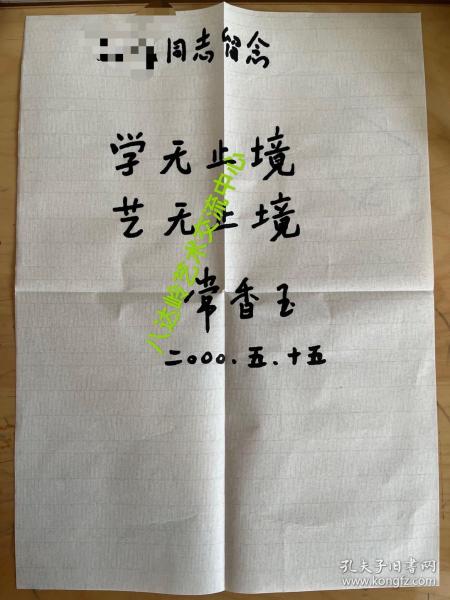 同志留念
学无止境
艺无止境
常香玉
二〇〇〇.五.十五
八达岭艺术交流中心
孔夫子旧书网
www.kongfz.com